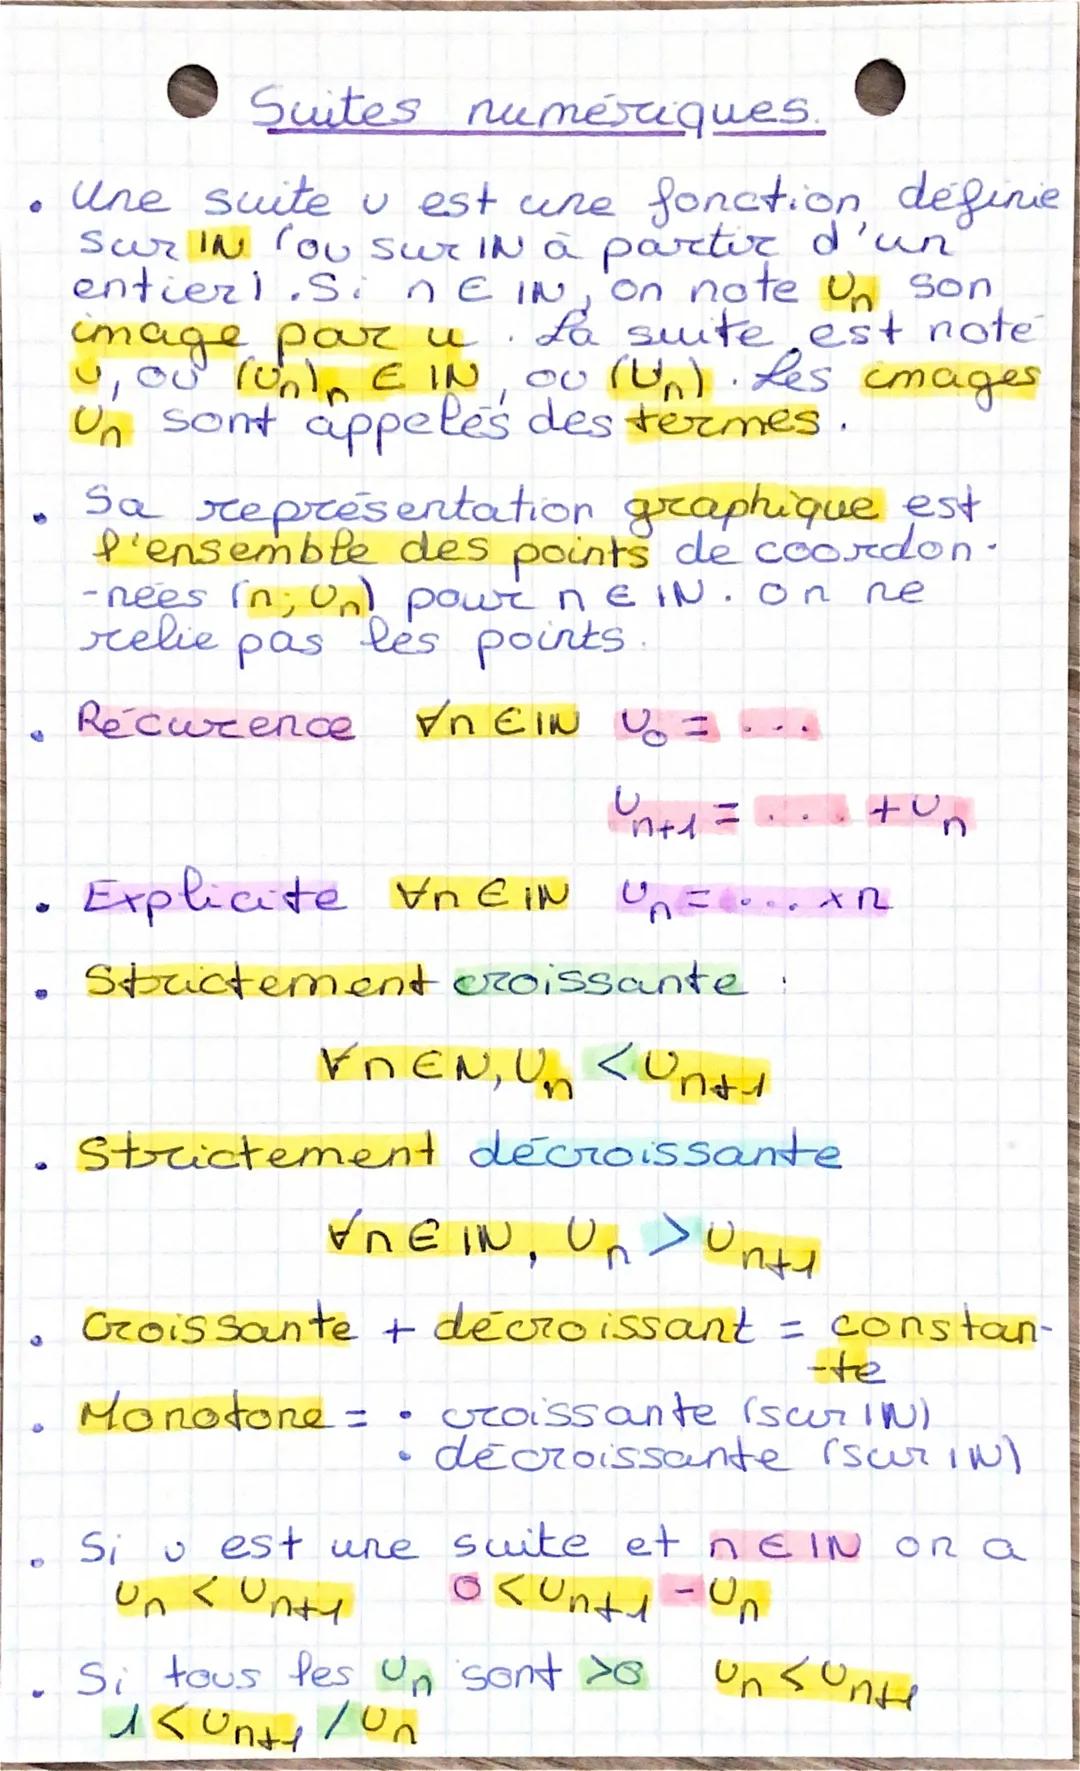 Suites numériques.
• Une suite u est une fonction définie
sur IN (ou sur IN à partir d'un
entier). Si n ∈ IN, on note Un son
image par u. La suite est noté
u, ou (Un)n ∈ IN, ou (Un). Les images
Un sont appelés des termes.
• Sa représentation graphique est
l'ensemble des points de coordon-
-nées (n; Un) pour n ∈ IN. on ne
relie pas les points.
• Récurence ∀n ∈ IN U0 = ...
Un+1 = ... + Un
• Explicite ∀n ∈ IN Un = ... × n
• Strictement croissante :
∀n ∈ N, Un < Un+1
• Strictement décroissante
∀n ∈ IN, Un > Un+1
• Croissante + décroissant = constan-
-te
• Monotone = • croissante (sur IN)
• décroissante (sur IN)
• Si u est une suite et n ∈ IN on a
Un < Un+1 0 < Un+1 - Un
• Si tous les Un sont >0 Un < Un+1
1 < Un+1 / Un